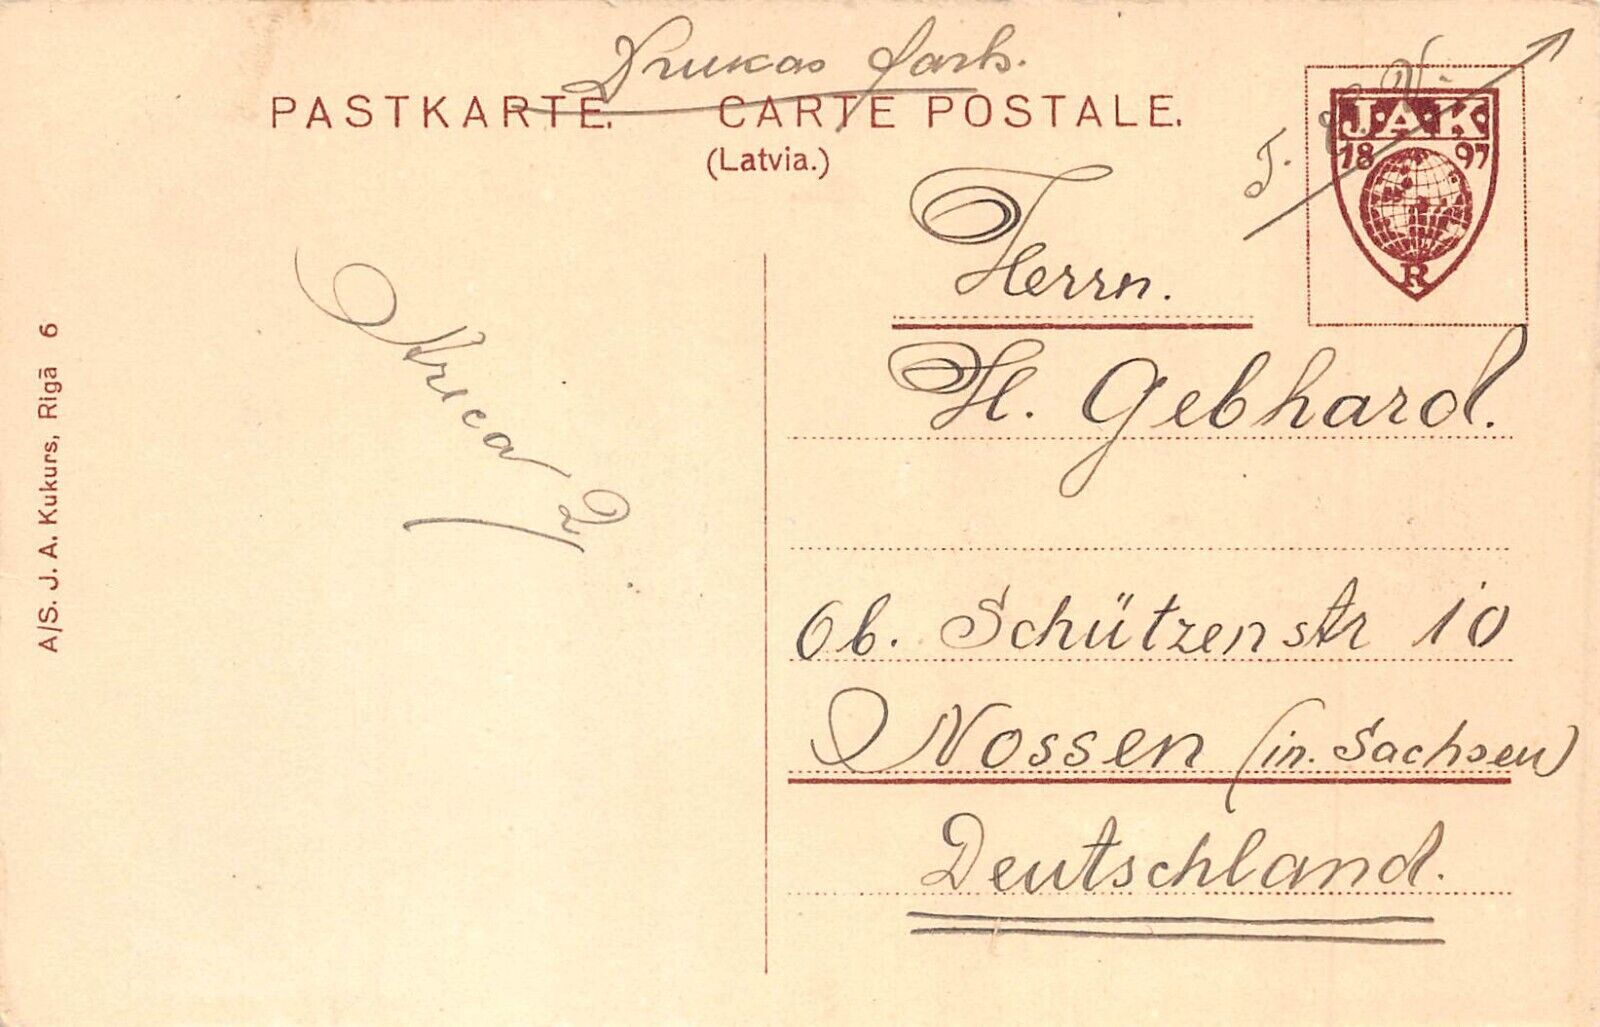 Drukas darb.
PASTKARTE. CARTE POSTALE.
(Latvia.)
J.A.K.
18 97
R
Herrn.
H. Gebhard.
Ob. Schützenstr 10
Nossen (in Sachsen)
Deutschland.
A/S. J. A. Kukurs, Rīgā 6